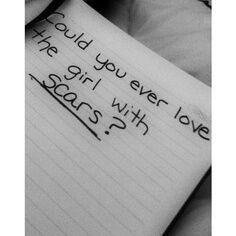 Could you ever love
the girl with
scars?